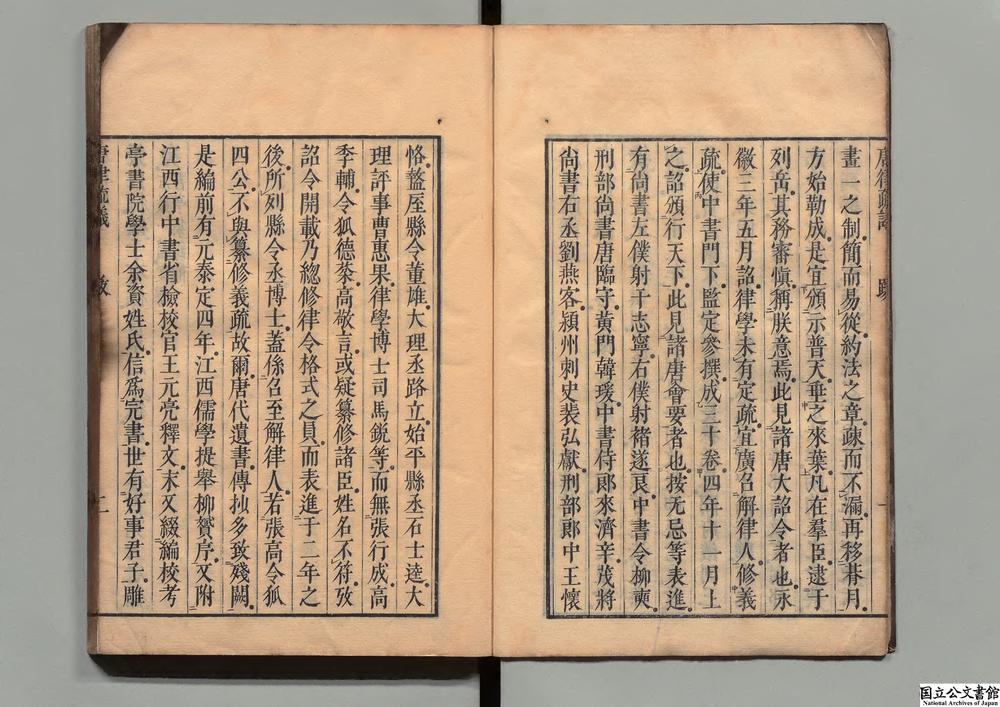 畫一之制簡而易從約法之章疎而不漏再移朞月
方始勒成是宜頒示普天垂之來葉凡在羣臣逮于
列岳其務審愼稱朕意焉此見諸唐大詔令者也永
徽三年五月詔律學未有定疏宜廣召解律人修義
疏使中書門下監定參撰成三十卷四年十一月上
之詔頒行天下此見諸唐會要者也按无忌等表進
有尙書左僕射于志寧右僕射褚遂良中書令柳奭
刑部尙書唐臨守黃門韓瑗中書侍郞來濟辛茂將
尙書右丞劉燕客潁州刺史裴弘獻刑部郞中王懷
恪盩厔縣令董雄大理丞路立始平縣丞石士逵大
理評事曹惠果律學博士司馬銳等而無張行成高
季輔令狐德棻高敬言或疑纂修諸臣姓名不符攷
詔令開載乃總修律令格式之員而表進于二年之
後所列縣令丞博士蓋係召至解律人若張高令狐
四公不與纂修義疏故爾唐代遺書傳抄多致殘闕
是編前有元泰定四年江西儒學提舉柳贇序又附
江西行中書省檢校官王元亮釋文末又綴編校考
亭書院學士余資姓氏信爲完書世有好事君子雕
唐律疏議
二
国立公文書館
National Archives of Japan